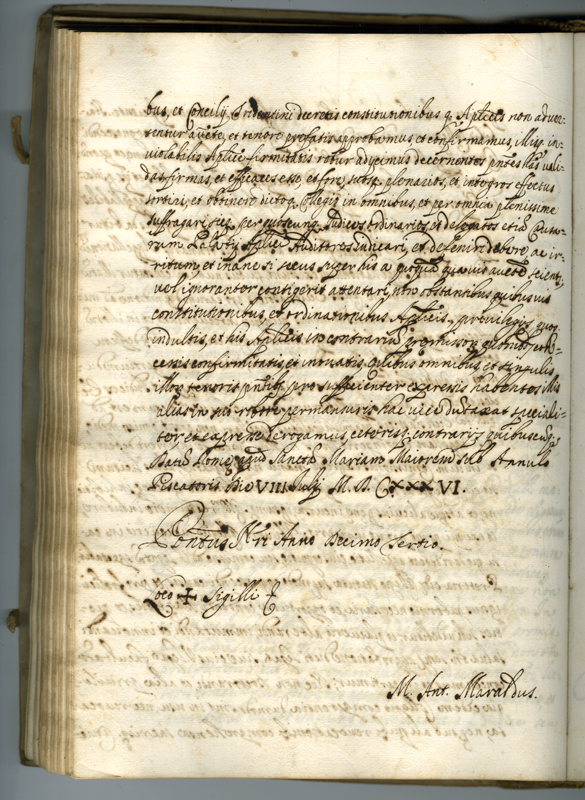 bus, et Concilij Tridentini decretis constitutionibus q. Aplicis non adver-
tentur aucte, et tenore prefatis approbamus et confirmamus, illisq. in-
violabilis Aplice firmitatis robur adijcimus decernentes pntes lras vali-
das firmas, et efficaces esse, et fore, suosq. plenarios, et integros effectus
sortiri, et obtinere dictoq. Collegio in omnibus, et per omnia plenissime
suffragari, sicq. per quoscunq. Judices ordinarios, et delegatos etiã Causa-
rum Palatij Aplici Auditores iudicari, et definiri debere, ac ir-
ritum, et inane si secus super his a quoquã quavis aucte scienter,
vel ignoranter contigerit attentari, non obstantibus quibusvis
constitutionibus, et ordinationibus Aplicis, privilegijs quoq.
indultis, et lris Aplicis in contrariũ premissorum quomodolibet con-
cessis confirmatis, et innovatis, quibus omnibus et singulis
illorũ tenoris pntibus pro sufficienter expressis habentes illis
alias in suo robore permansuris hac vice dũtaxat speciali-
ter et expresse derogamus, ceterisq. contrarijs quibuscunq.
Datũ Rome apud Sanctã Mariam Maiorem sub Annulo
Piscatoris Die VIII Julij M. D. CXXXVI.
Pontus Nri Anno Decimo Tertio.
Loco + Sigilli
M. Ant. Maraldus.